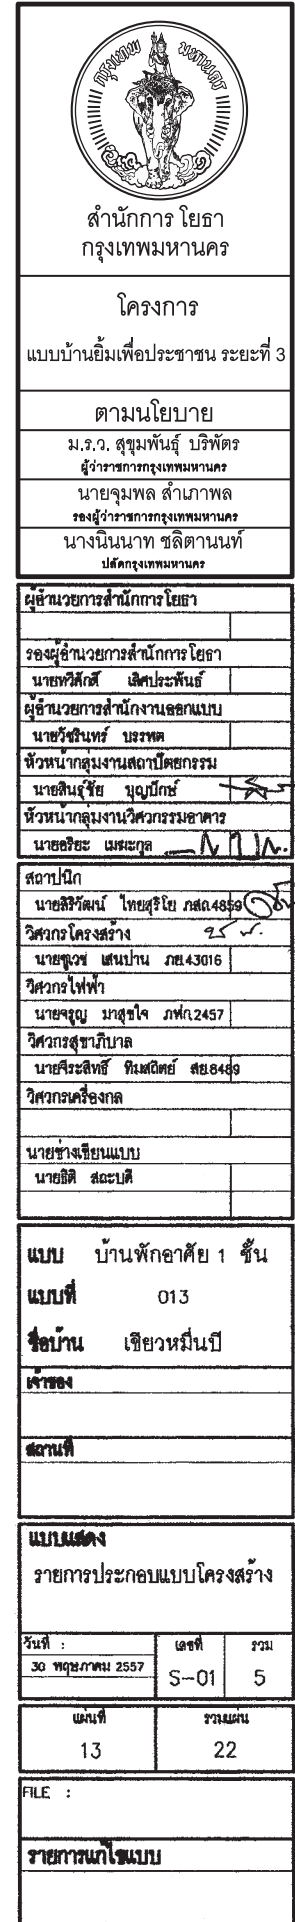 กรุงเทพ มหานคร
สำนักการ โยธา
กรุงเทพมหานคร
โครงการ
แบบบ้านยิ้มเพื่อประชาชน ระยะที่ 3
ตามนโยบาย
ม.ร.ว. สุขุมพันธุ์ บริพัตร
ผู้ว่าราชการกรุงเทพมหานคร
นายจุมพล สำเภาพล
รองผู้ว่าราชการกรุงเทพมหานคร
นางนินนาท ชลิตานนท์
ปลัดกรุงเทพมหานคร
ผู้อำนวยการสำนักการโยธา
รองผู้อำนวยการสำนักการโยธา
นายทวีศักดิ์ เลิศประพันธ์
ผู้อำนวยการสำนักงานออกแบบ
นายวัชรินทร์ บรรพต
หัวหน้ากลุ่มงานสถาปัตยกรรม
นายสินธุ์ชัย บุญปักษ์
หัวหน้ากลุ่มงานวิศวกรรมอาคาร
นายอริยะ เมฆะกุล
สถาปนิก
นายสิริวัฒน์ ไทยสุริโย ภสถ.4859
วิศวกรโครงสร้าง
นายชูเวช เสนปาน ภย.43016
วิศวกรไฟฟ้า
นายจรูญ มาสุขใจ ภฟก.2457
วิศวกรสุขาภิบาล
นายจีระสิทธิ์ ทิมสถิตย์ สย.8489
วิศวกรเครื่องกล
นายช่างเขียนแบบ
นายธิติ สถะบดี
แบบ บ้านพักอาศัย 1 ชั้น
แบบที่ 013
ชื่อบ้าน เขียวหมื่นปี
เจ้าของ
สถานที่
แบบแสดง
รายการประกอบแบบโครงสร้าง
วันที่ : เลขที่ รวม
30 พฤษภาคม 2557 S-01 5
แผ่นที่ รวมแผ่น
13 22
FILE :
รายการแก้ไขแบบ